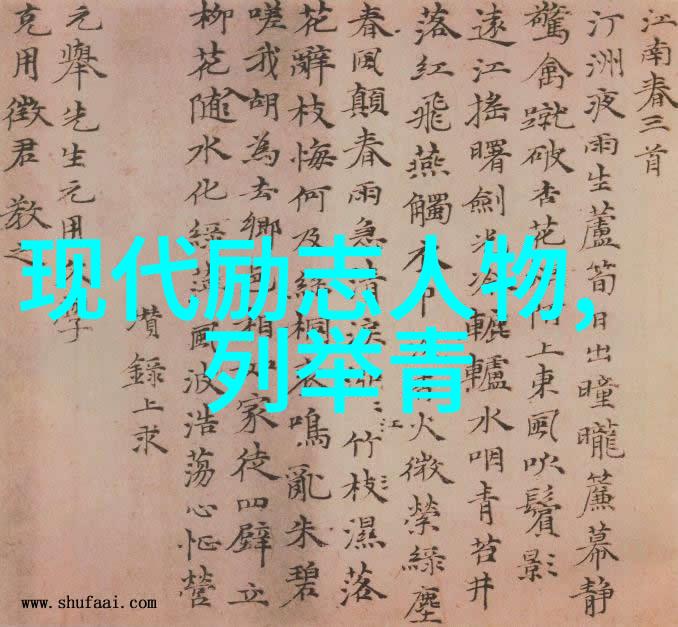 江南春三首
汀洲夜雨生蘆筍日出曈曨簾幕静
驚禽蹴破杏花 上東風吹鬢影
遠江搖曙劍 轆轤水咽青苔井
落紅飛燕觸 火微縈緑塵
春風顛春雨急清淚 江竹枝濕落
花辭枝悔何及 桐 鳴亂朱碧
嗟我胡為去鄉 家徒四壁立
柳花隨水化緑 風波浩蕩心怔營
瓚錄上求
元舉先生元用 學
克用徵君教之
现代励志人物,
列举青
www.shufaai.com